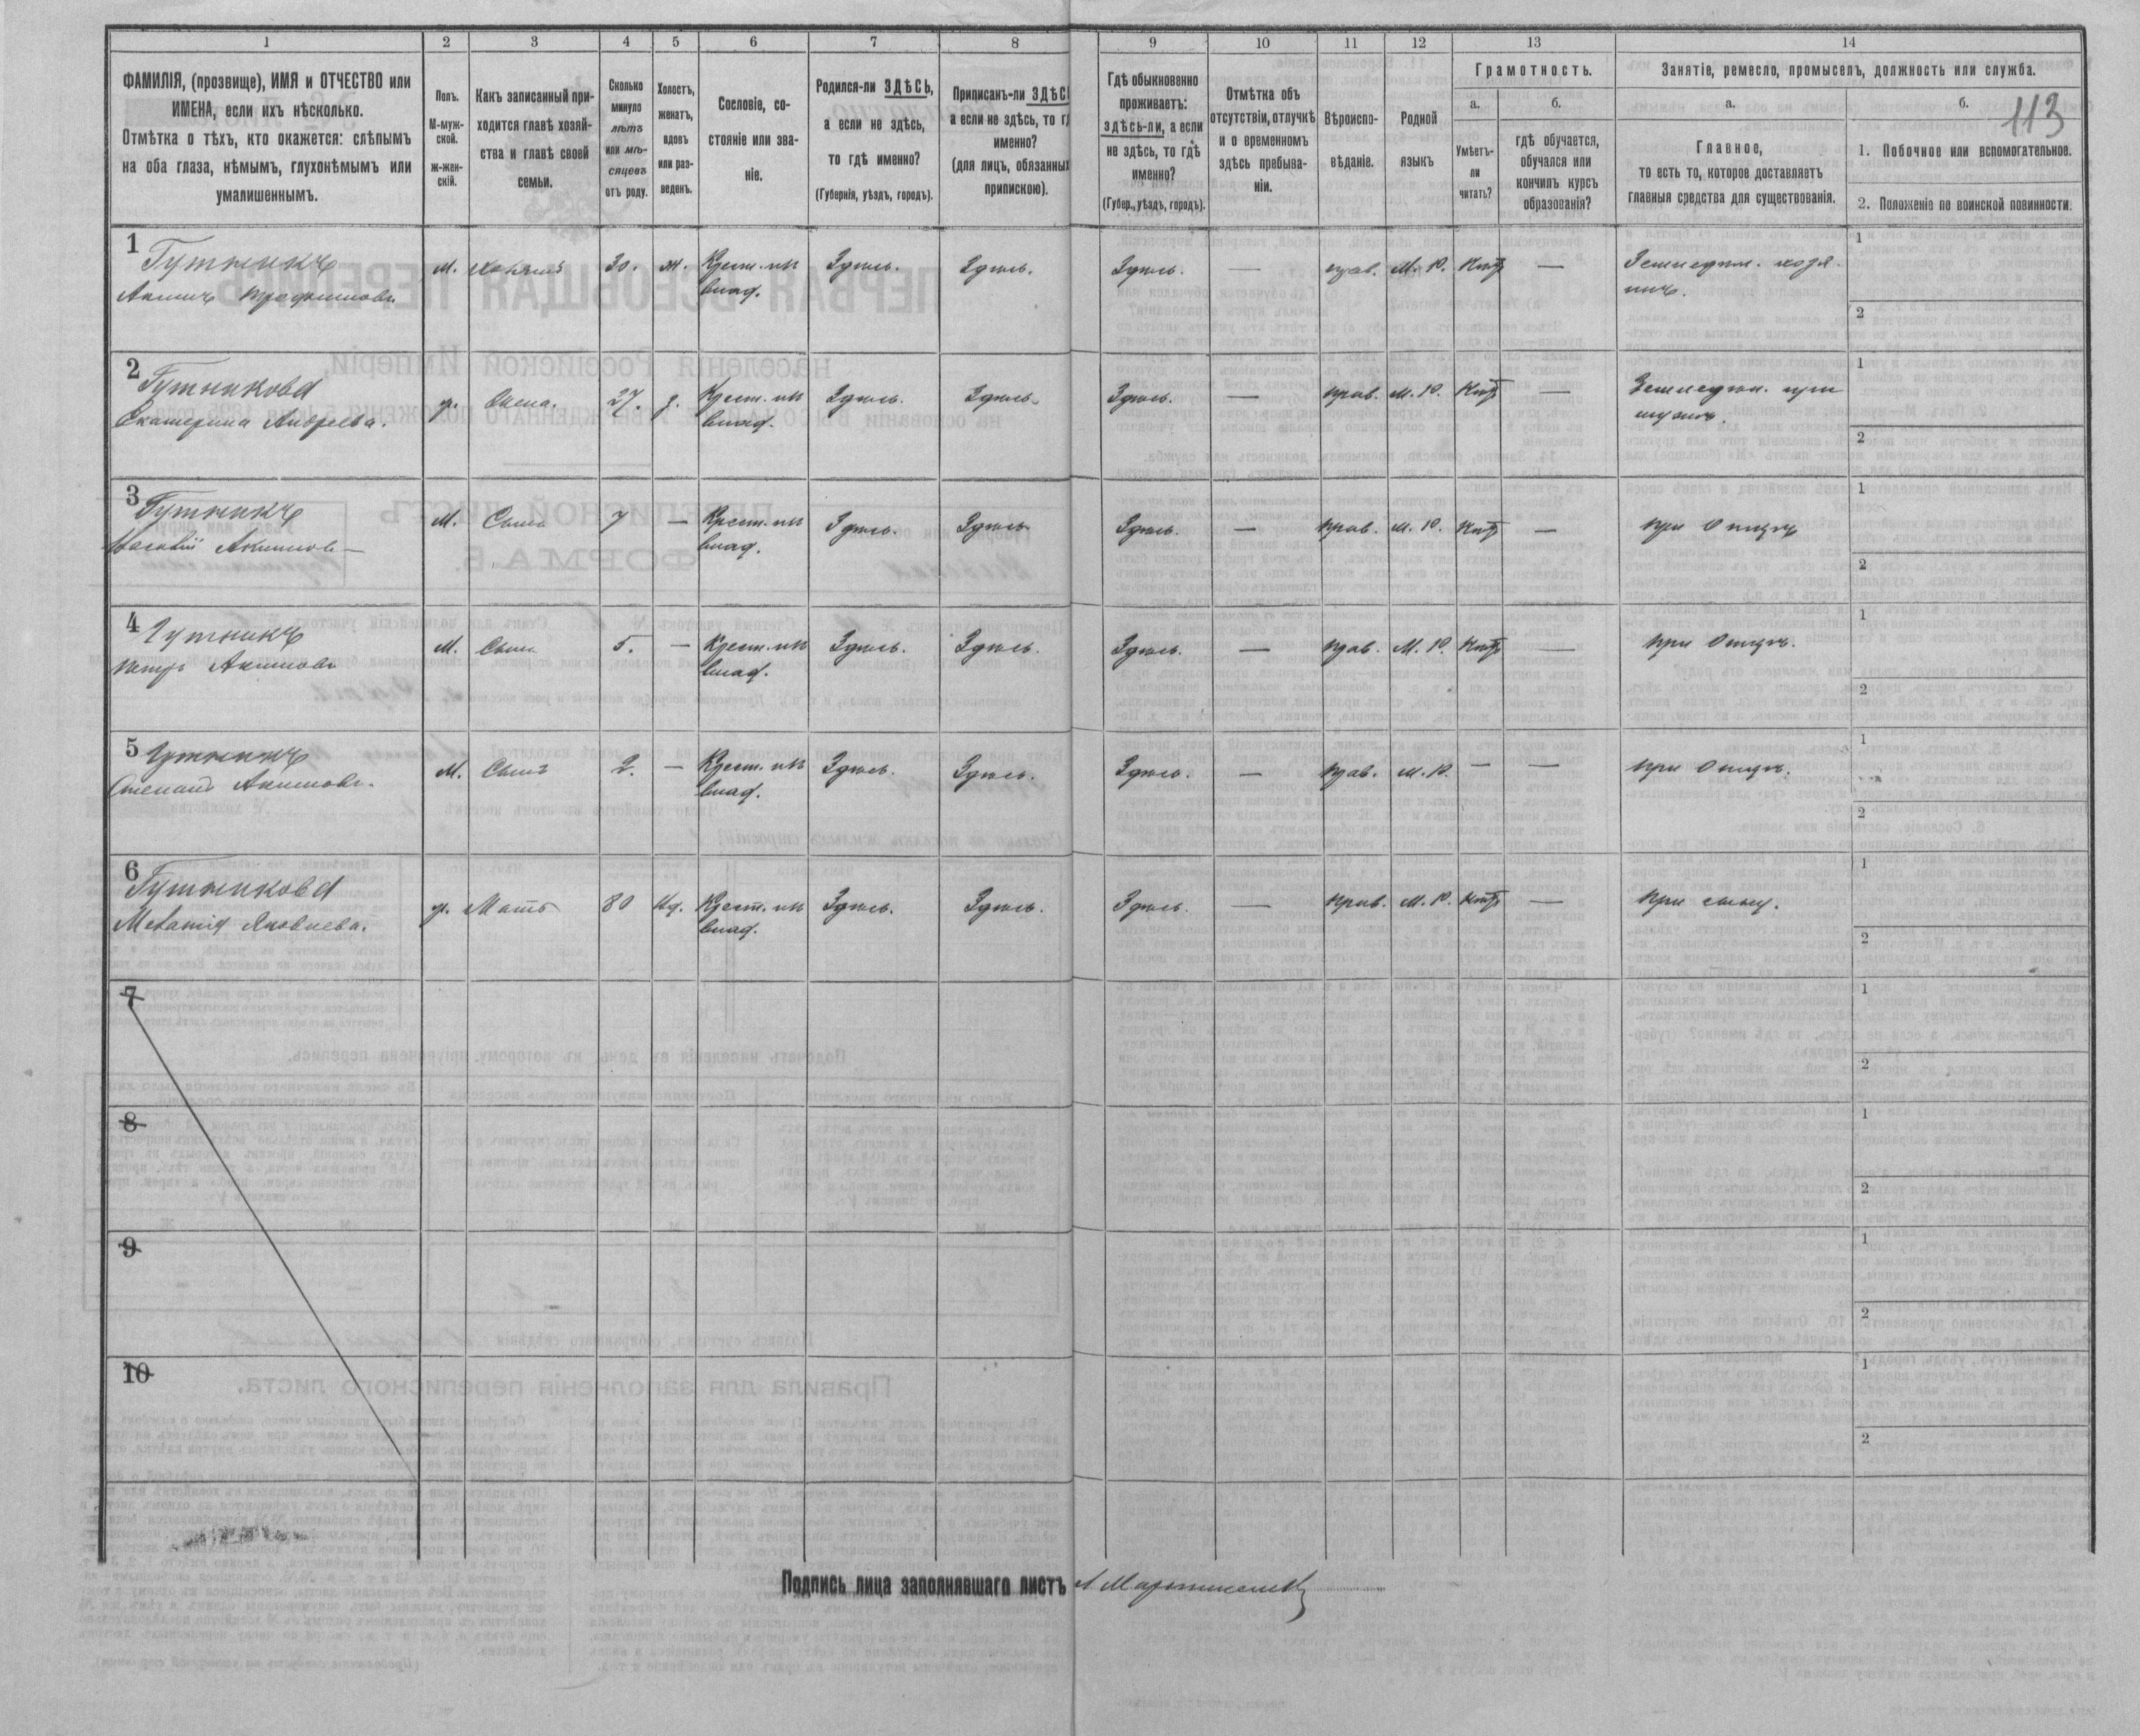 1 2 3 4 5 6 7 8 9 10 11 12 13 14
ФАМИЛІЯ, (прозвище), ИМЯ и ОТЧЕСТВО или
ИМЕНА, если ихъ нѣсколько.
Отмѣтка о тѣхъ, кто окажется: слѣпымъ
на оба глаза, нѣмымъ, глухонѣмымъ или
умалишеннымъ.
Полъ.
М-муж-
ской.
ж-жен-
скій.
Какъ записанный при-
ходится главѣ хозяй-
ства и главѣ своей
семьи.
Сколько
минуло
лѣтъ
или мѣ-
сяцевъ
отъ роду.
Холостъ,
женатъ,
вдовъ
или раз-
веденъ.
Сословіе, со-
стояніе или зва-
ніе.
Родился-ли ЗДѢСЬ,
а если не здѣсь,
то гдѣ именно?
(Губернія, уѣздъ, городъ).
Приписанъ-ли ЗДѢС
а если не здѣсь, то г
именно?
(для лицъ, обязанных
припискою).
Гдѣ обыкновенно
проживаетъ:
здѣсь-ли, а если
не здѣсь, то гдѣ
именно?
(Губер., уѣздъ, городъ).
Отмѣтка объ
отсутствіи, отлучкѣ
и о временномъ
здѣсь пребыва-
ніи.
Вѣроиспо-
вѣданіе.
Родной
языкъ
Грамотность.
а.
Умѣетъ-
ли
читать?
б.
гдѣ обучается,
обучался или
кончилъ курсъ
образованія?
Занятіе, ремесло, промыселъ, должность или служба.
а.
Главное,
то есть то, которое доставляетъ
главныя средства для существованія.
б.
113
1. Побочное или вспомогательное.
2. Положеніе по воинской повинности.
1
Гутникъ
Акимъ Трофимовъ
м. хозяинъ 30. ж. Крест. изъ Здѣсь. Здѣсь. Здѣсь. — прав. М. Р. нѣтъ —
влад.
Земледѣл. хозя
инъ.
1
2
2
Гутникова
Екатерина Андреева.
ж. Жена. 27. з. Крест. изъ Здѣсь. Здѣсь. Здѣсь. — прав. М. Р. нѣтъ —
влад.
Земледѣл. при
мужѣ.
1
2
3
Гутникъ
Акимов
М. Сынъ 7 — Крест. изъ Здѣсь. Здѣсь. Здѣсь. — прав. М. Р. нѣтъ —
влад.
при Отцѣ
1
2
4
Гутникъ
Петръ Акимовъ
М. Сынъ 5. — Крест. изъ Здѣсь. Здѣсь. Здѣсь. — прав. М. Р. нѣтъ —
влад.
при Отцѣ.
1
2
5
Гутникъ
Степанъ Акимовъ.
М. Сынъ 2. — Крест. изъ Здѣсь. Здѣсь. Здѣсь. — прав. М. Р. — —
влад.
при Отцѣ.
1
2
6
Гутникова
Меланія Яковлева.
ж. Мать 80 вд. Крест. изъ Здѣсь. Здѣсь. Здѣсь. — прав. М. Р. нѣтъ —
влад.
при сыну.
1
2
7
1
2
8
1
2
9
1
2
10
1
2
Подпись лица заполнявшаго листъ